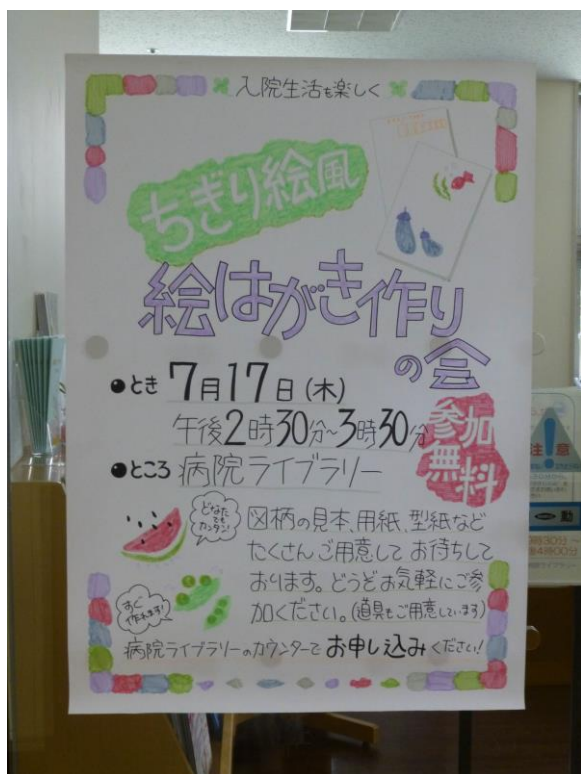 入院生活を楽しく
ちぎり絵風
絵はがき作り
の会
●とき 7月17日(木)
午後2時30分~3時30分
参加
無料
●ところ 病院ライブラリー
どなた
でも
カンタン!
図柄の見本、用紙、型紙など
たくさんご用意して お待ちして
おります。どうぞお気軽にご参
加ください。(道具もご用意しています)
すぐ
作れます!
病院ライブラリーのカウンターで お申し込みください!
注 意